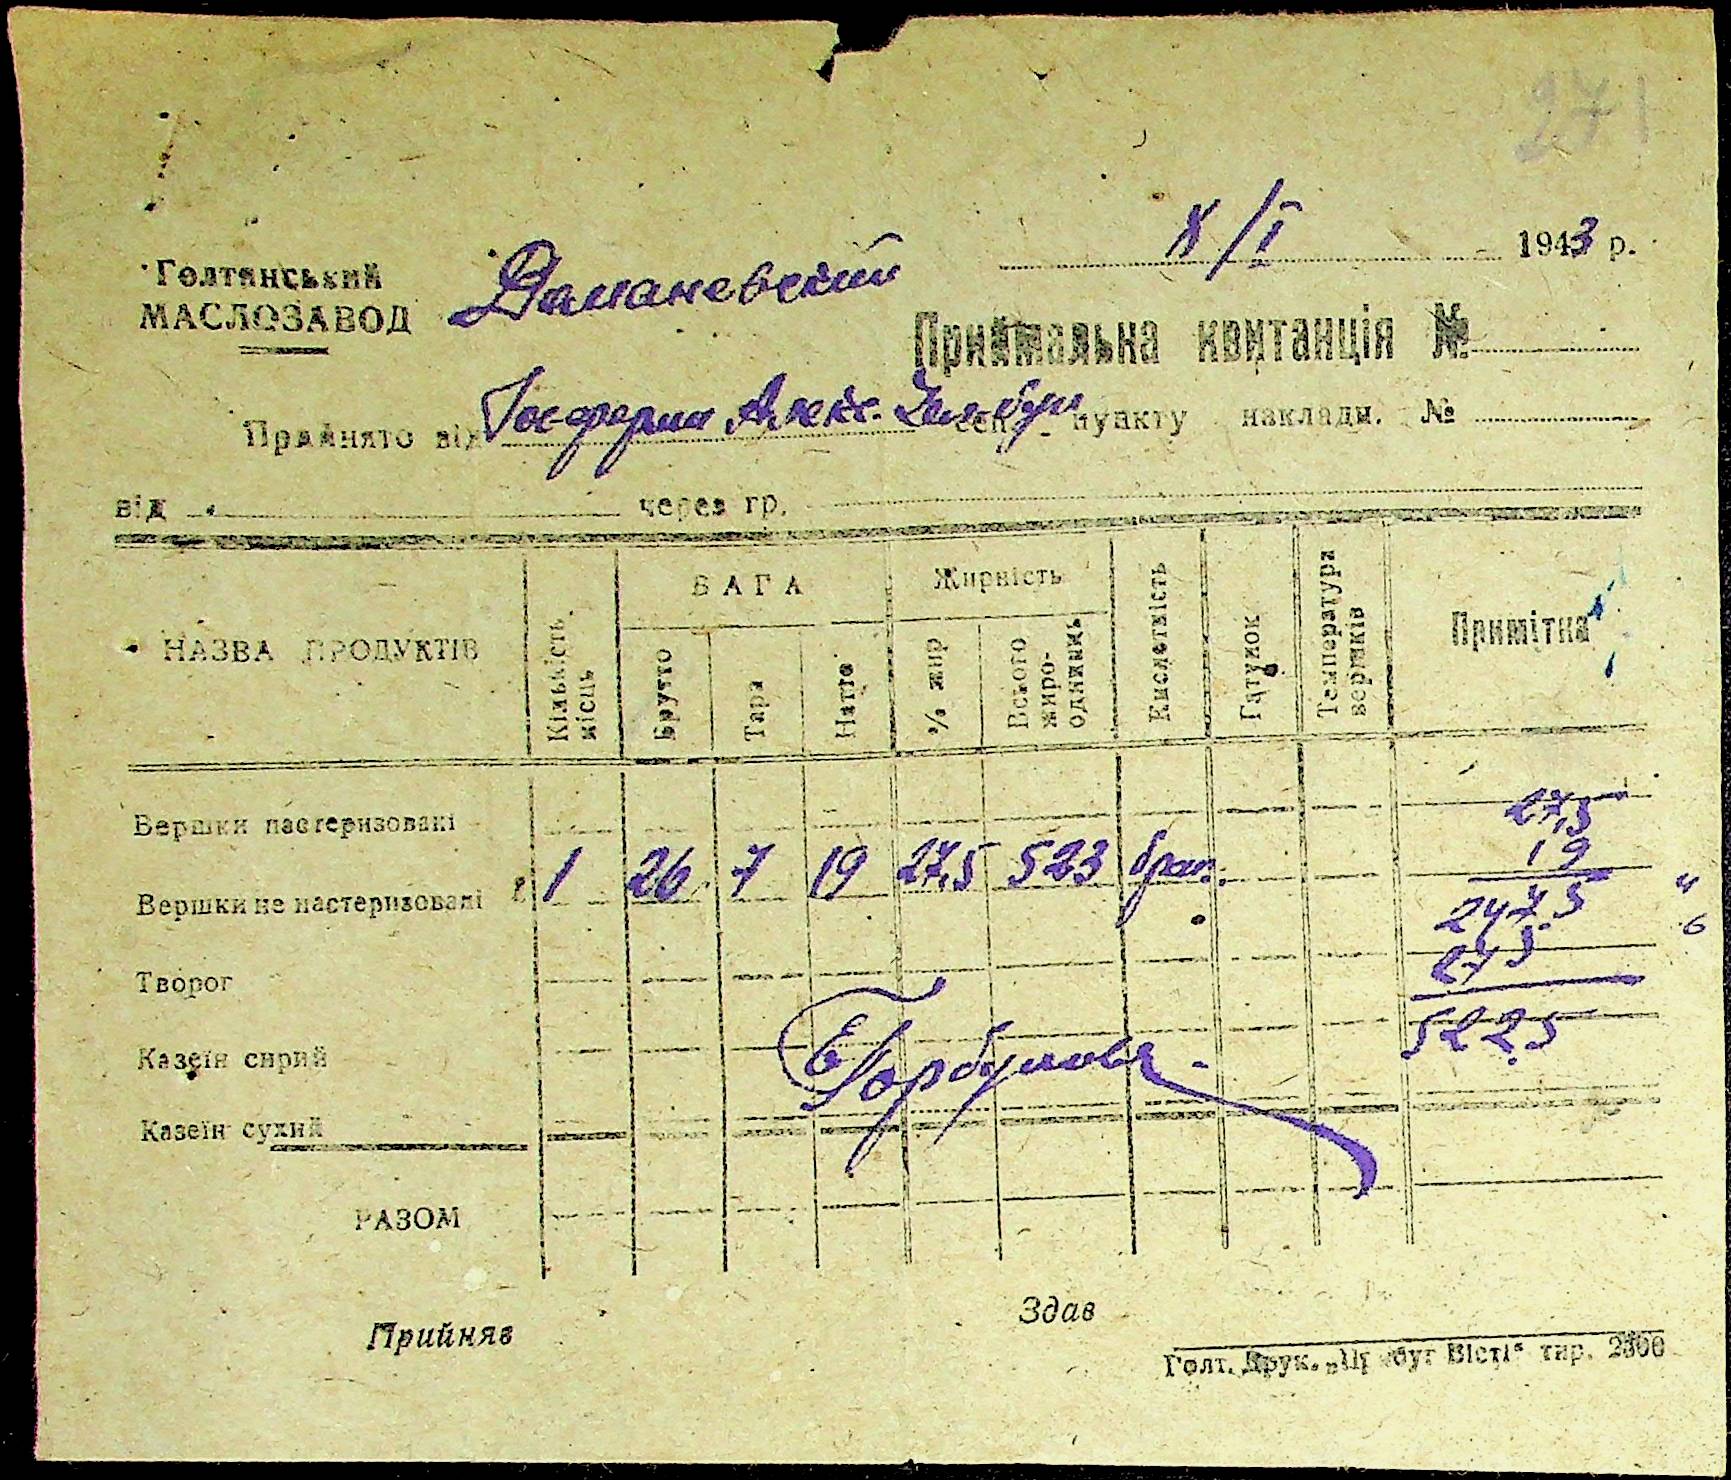 271
8/I 1943 р.
Голтянський
МАСЛОЗАВОД
Доманевский
Приймальна квитанція №
Прийнято від Госферми Алекс. пункту накладн. №
від через гр.
НАЗВА ПРОДУКТІВ Кількість місць ВАГА Брутто Тара Натто Жирність % жир Всього жиро-одиниць Кислотність Гатунок Температура вершків Примітка
Вершки пастеризовані 27,5
19
Вершки не пастеризовані 1 26 7 19 27,5 523 брак.
247.5
Творог 275
Казеїн сирий 522.5
Е Горбунова
Казеїн сухий
РАЗОМ
Прийняв Здав
Голт. Друк. „Прибуг Вісті“ тир. 2300